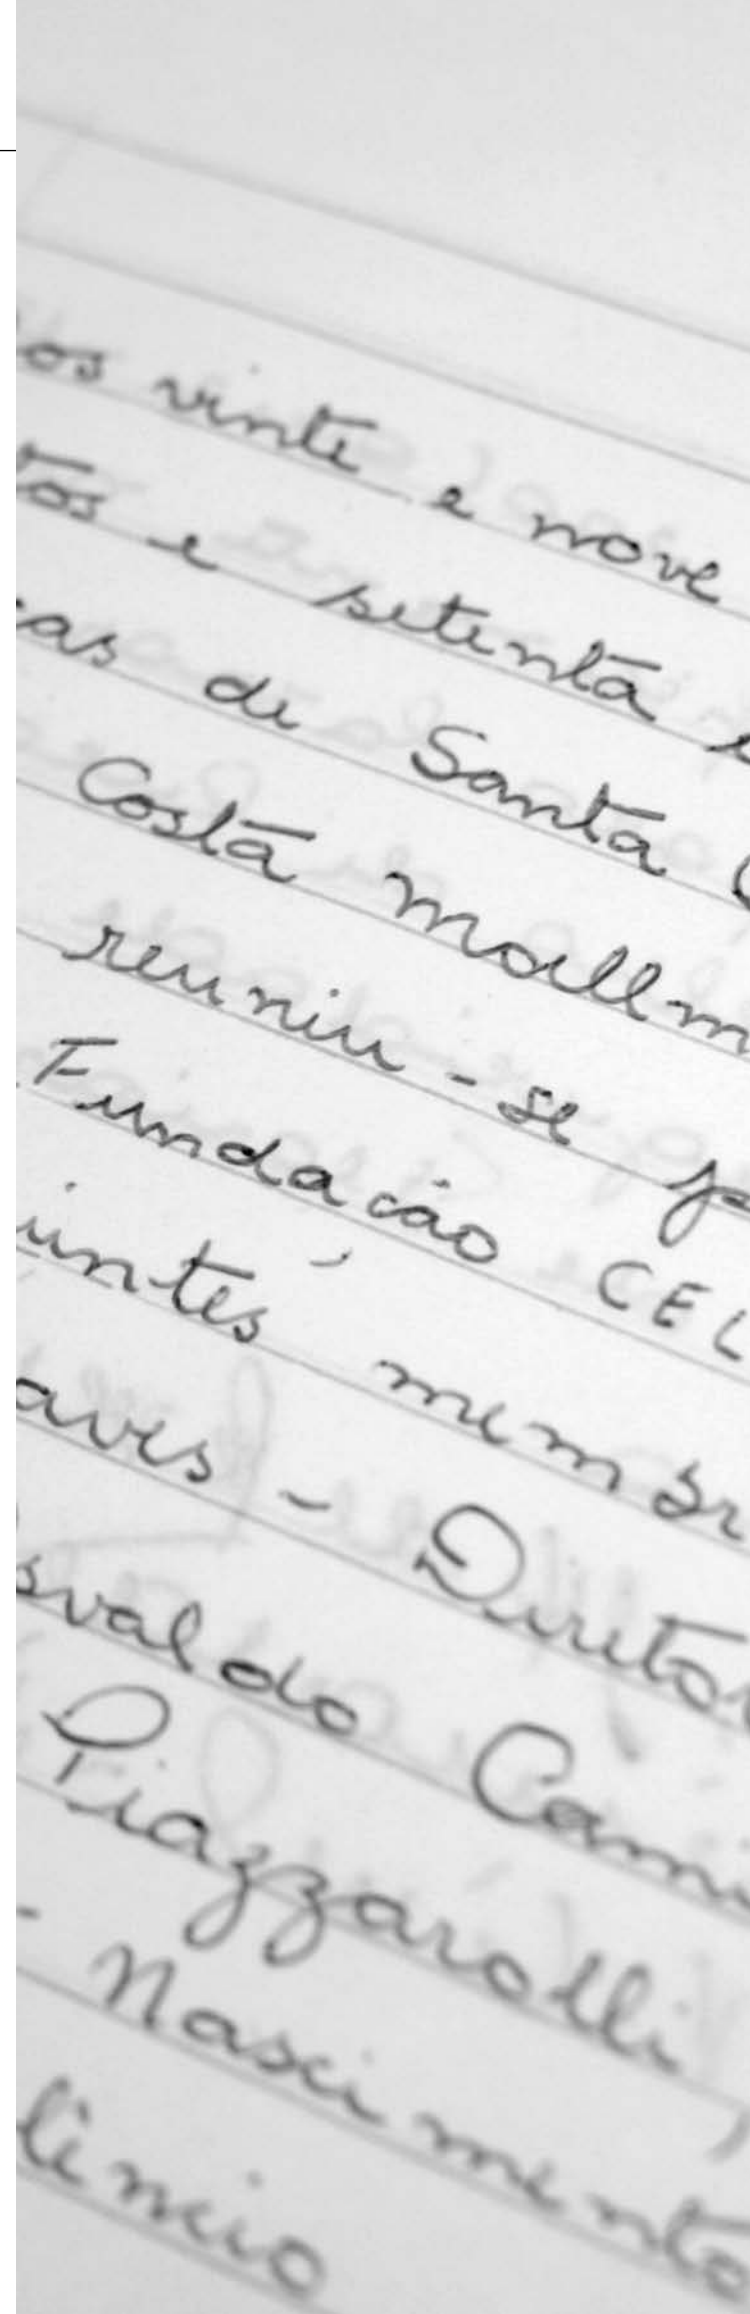 os vinte e nove
tos e setenta e
cas de Santa C
Costa Mallm
reuniu-se pa
Fundação CEL
uintes membr
aves - Diretor
svaldo Cami
Piazzarolli,
- Nascimento
lêncio